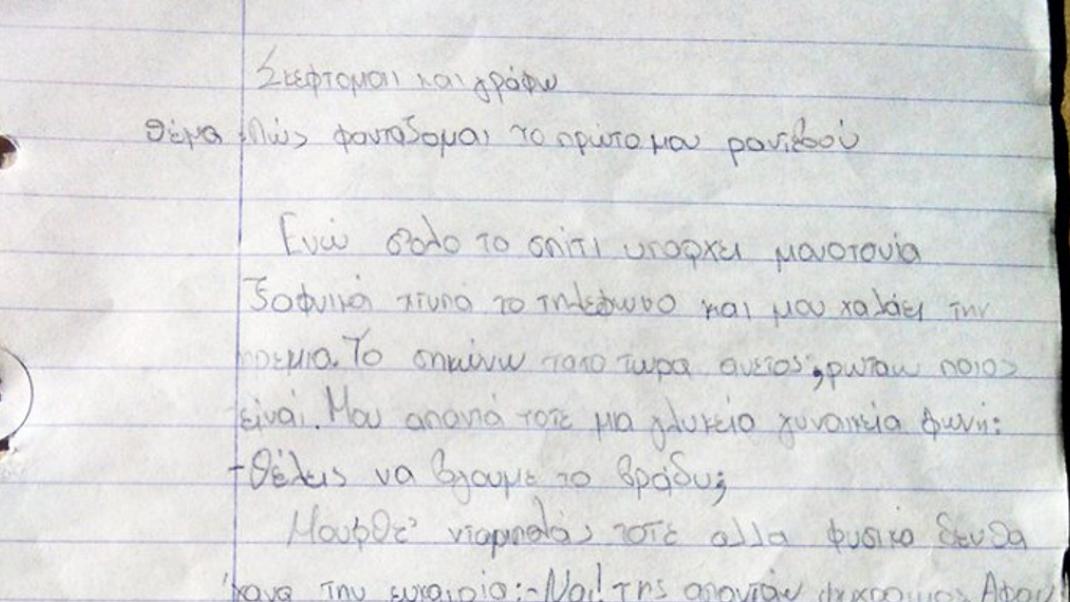 Σκεφτομαι και γράφω
θέμα: Πώς φανταζομαι το πρώτο μου ραντεβού
Ενώ σ'ολο το σπίτι υπαρχει μονοτονια
ξαφνικά χτυπά το τηλεφωνο και μου χαλάει την
ηρεμια. Το σηκώνω τωρα ανετος, ρωταω ποιος
είναι. Μου απαντά τοτε μια γλυκεία γυναικεία φωνή:
-Θέλεις να βγουμε το βράδυ;
Μουρθε νταμπλάς τοτε αλλα φυσικα δεν θα
έχανα την ευκαιρία:-Ναι! της απανταω